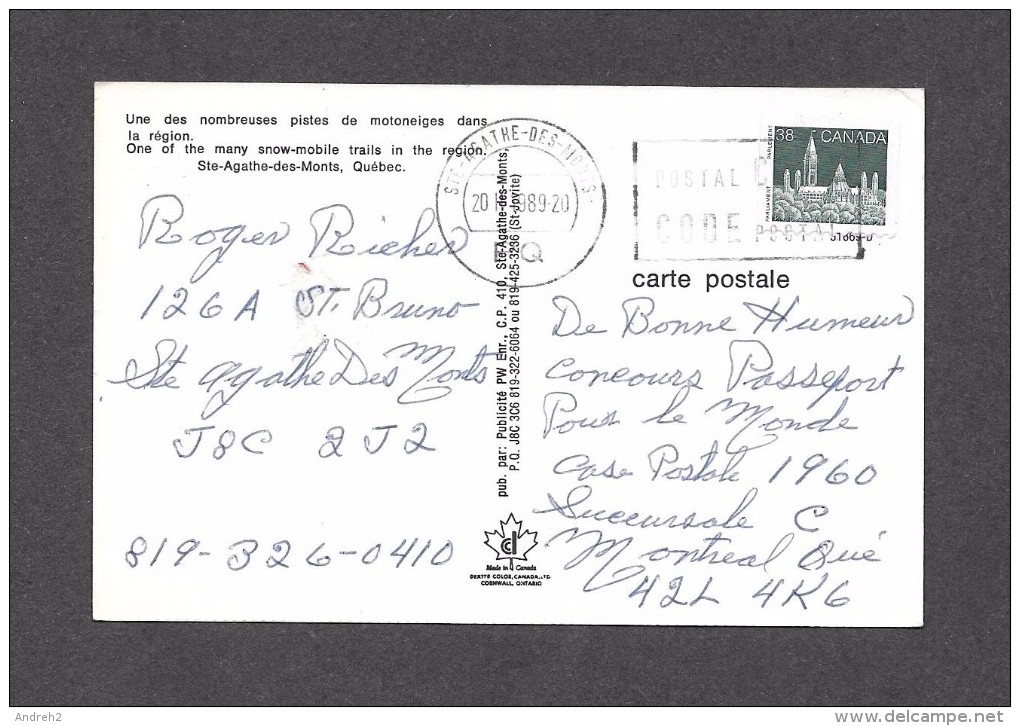 Une des nombreuses pistes de motoneiges dans
la région.
One of the many snow-mobile trails in the region.
Ste-Agathe-des-Monts, Québec.
Roger Richer
126A St. Bruno
Ste Agathe Des Monts
J8C 2J2
819-326-0410
STE-AGATHE-DES-MONTS
1989-20
P Q
pub. par: Publicité PW Enr., C.P. 410, Ste-Agathe-des-Monts,
P.Q. J8C 3C6 819-322-6064 ou 819-425-3236 (St-Jovite)
Made in Canada
DEXTER COLOR, CANADA, LTD.
CORNWALL, ONTARIO
POSTAL C
CODE POSTAL
PARLIAMENT PARLEMENT
38 CANADA
51669-D
carte postale
De Bonne Humeur
Concours Passeport
Pour le Monde
Case Postale 1960
Succursale C
Montreal Qué
42L 4K6
Andreh2
www.delcampe.net